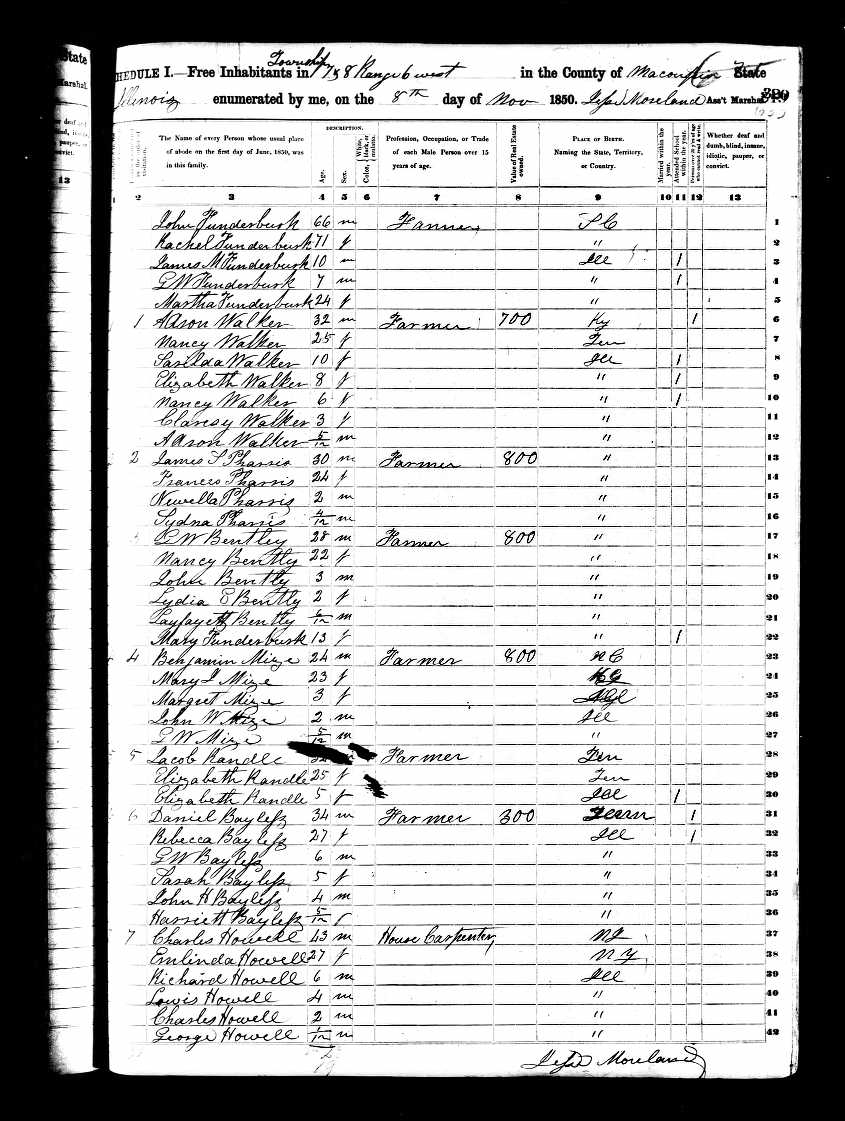 State
Marshal.
SCHEDULE I.—Free Inhabitants in Township 7 & 8 Range 6 west in the County of Macoupin State
Illinois enumerated by me, on the 8th day of Nov 1850. Jesse Moreland Ass't Marshal.
DESCRIPTION.
The Name of every Person whose usual place of abode on the first day of June, 1850, was in this family.
Age.
Sex.
Color, White, black, or mulatto.
Profession, Occupation, or Trade of each Male Person over 15 years of age.
Value of Real Estate owned.
PLACE OF BIRTH. Naming the State, Territory, or Country.
Married within the year.
Attended School within the year.
Whether deaf and dumb, blind, insane, idiotic, pauper, or convict.
13
2 3 4 5 6 7 8 9 10 11 12 13
John Funderburk 66 m Farmer S C 1
Rachel Funderburk 71 f " 2
James M Funderburk 10 m Ill 1 3
G W Funderburk 7 m " 1 4
Martha Funderburk 24 f " 5
1 Aaron Walker 32 m Farmer 700 Ky 1 6
Nancy Walker 25 f Ten 7
Sarilda Walker 10 f Ill 1 8
Elizabeth Walker 8 f " 1 9
Nancy Walker 6 f " 1 10
Claresy Walker 3 f " 11
Aaron Walker 5/12 m " 12
2 James S Pharris 30 m Farmer 800 " 13
Frances Pharris 24 f " 14
Newella Pharris 2 m " 15
Sydna Pharris 4/12 m " 16
G W Bentley 28 m Farmer 800 " 17
Nancy Bently 22 f " 18
John Bently 3 m " 19
Lydia E Bently 2 f " 20
Layfayett Bently 6/12 m " 21
Mary Funderburk 13 f " 1 22
4 Benjamin Mize 24 m Farmer 800 N C 23
Mary J Mize 23 f 24
Margret Mize 3 f 25
John W Mize 2 m Ill 26
G W Mize 5/12 m " 27
5 Jacob Randle Farmer Ten 28
Elizabeth Randle 25 f Ten 29
Elizabeth Randle 5 f Ill 1 30
6 Daniel Bayless 34 m Farmer 300 Tenn 1 31
Rebecca Bayless 27 f Ill 1 32
G W Bayless 6 m " 33
Sarah Bayless 5 f " 34
John H Bayless 4 m " 35
Harriett Bayless 5/12 f " 36
7 Charles Howell 43 m House Carpenter N J 37
Emlinda Howell 27 f N Y 38
Richard Howell 6 m Ill 39
Lowis Howell 4 m " 40
Charles Howell 2 m " 41
George Howell 1/12 m " 42
Jesse Moreland